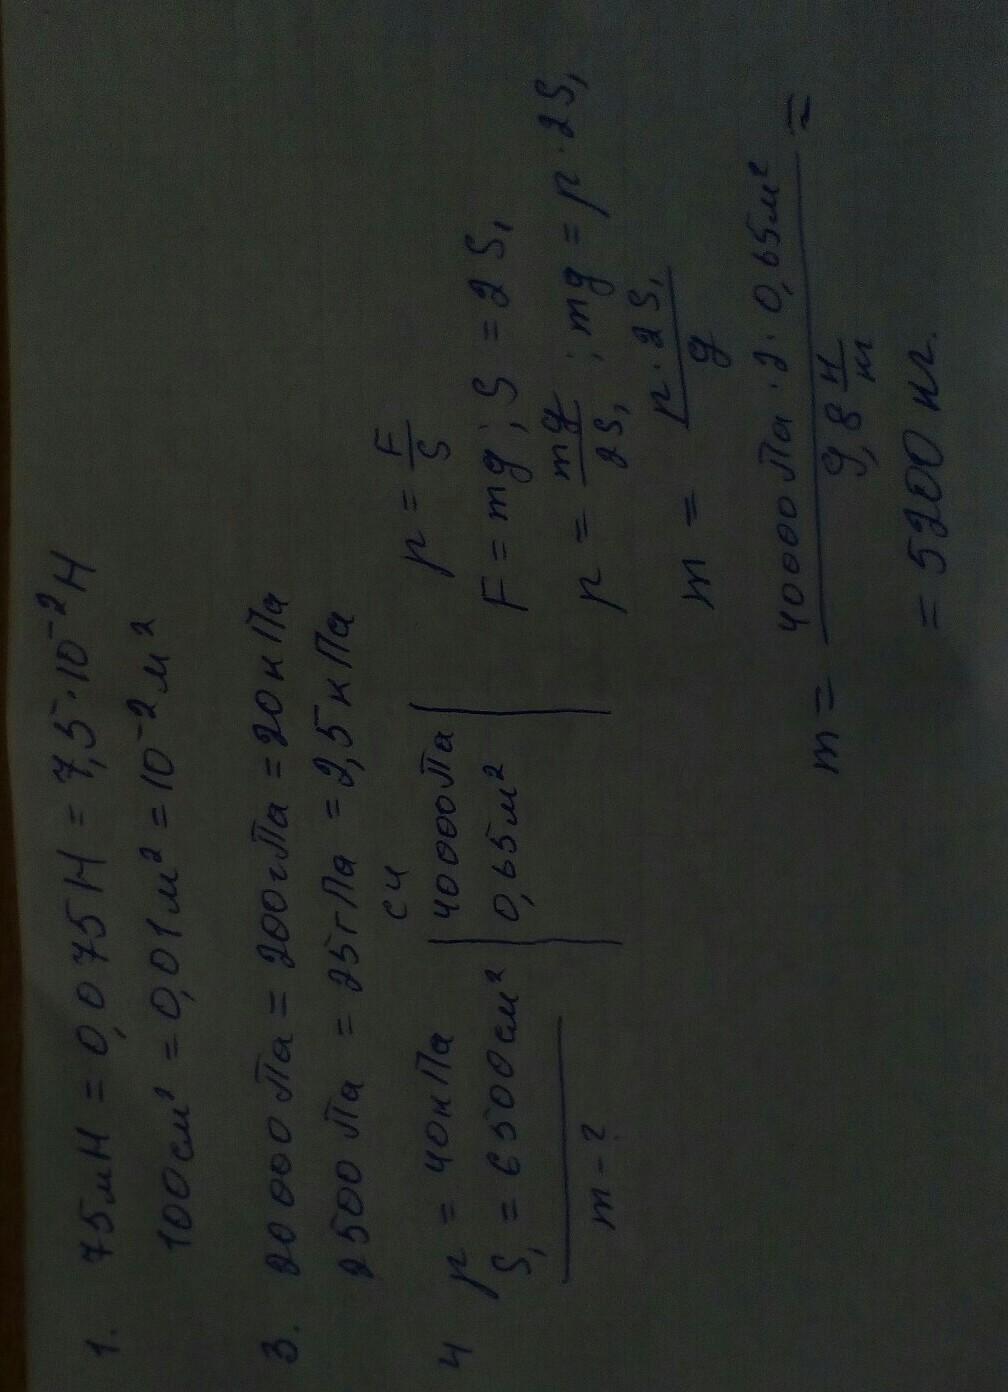 1. 75мН = 0,075Н = 7,5·10⁻²Н
100см² = 0,01м² = 10⁻²м²
3. 20000Па = 200гПа = 20кПа
2500Па = 25гПа = 2,5кПа
СИ
4 p = 40кПа | 40000Па
S₁ = 6500см² | 0,65м²
m - ?
p = F/S
F = mg; S = 2S₁
p = mg/2S₁; mg = p·2S₁
m = p·2S₁/g
m = 40000Па·2·0,65м²/9,8 Н/кг =
= 5200кг.